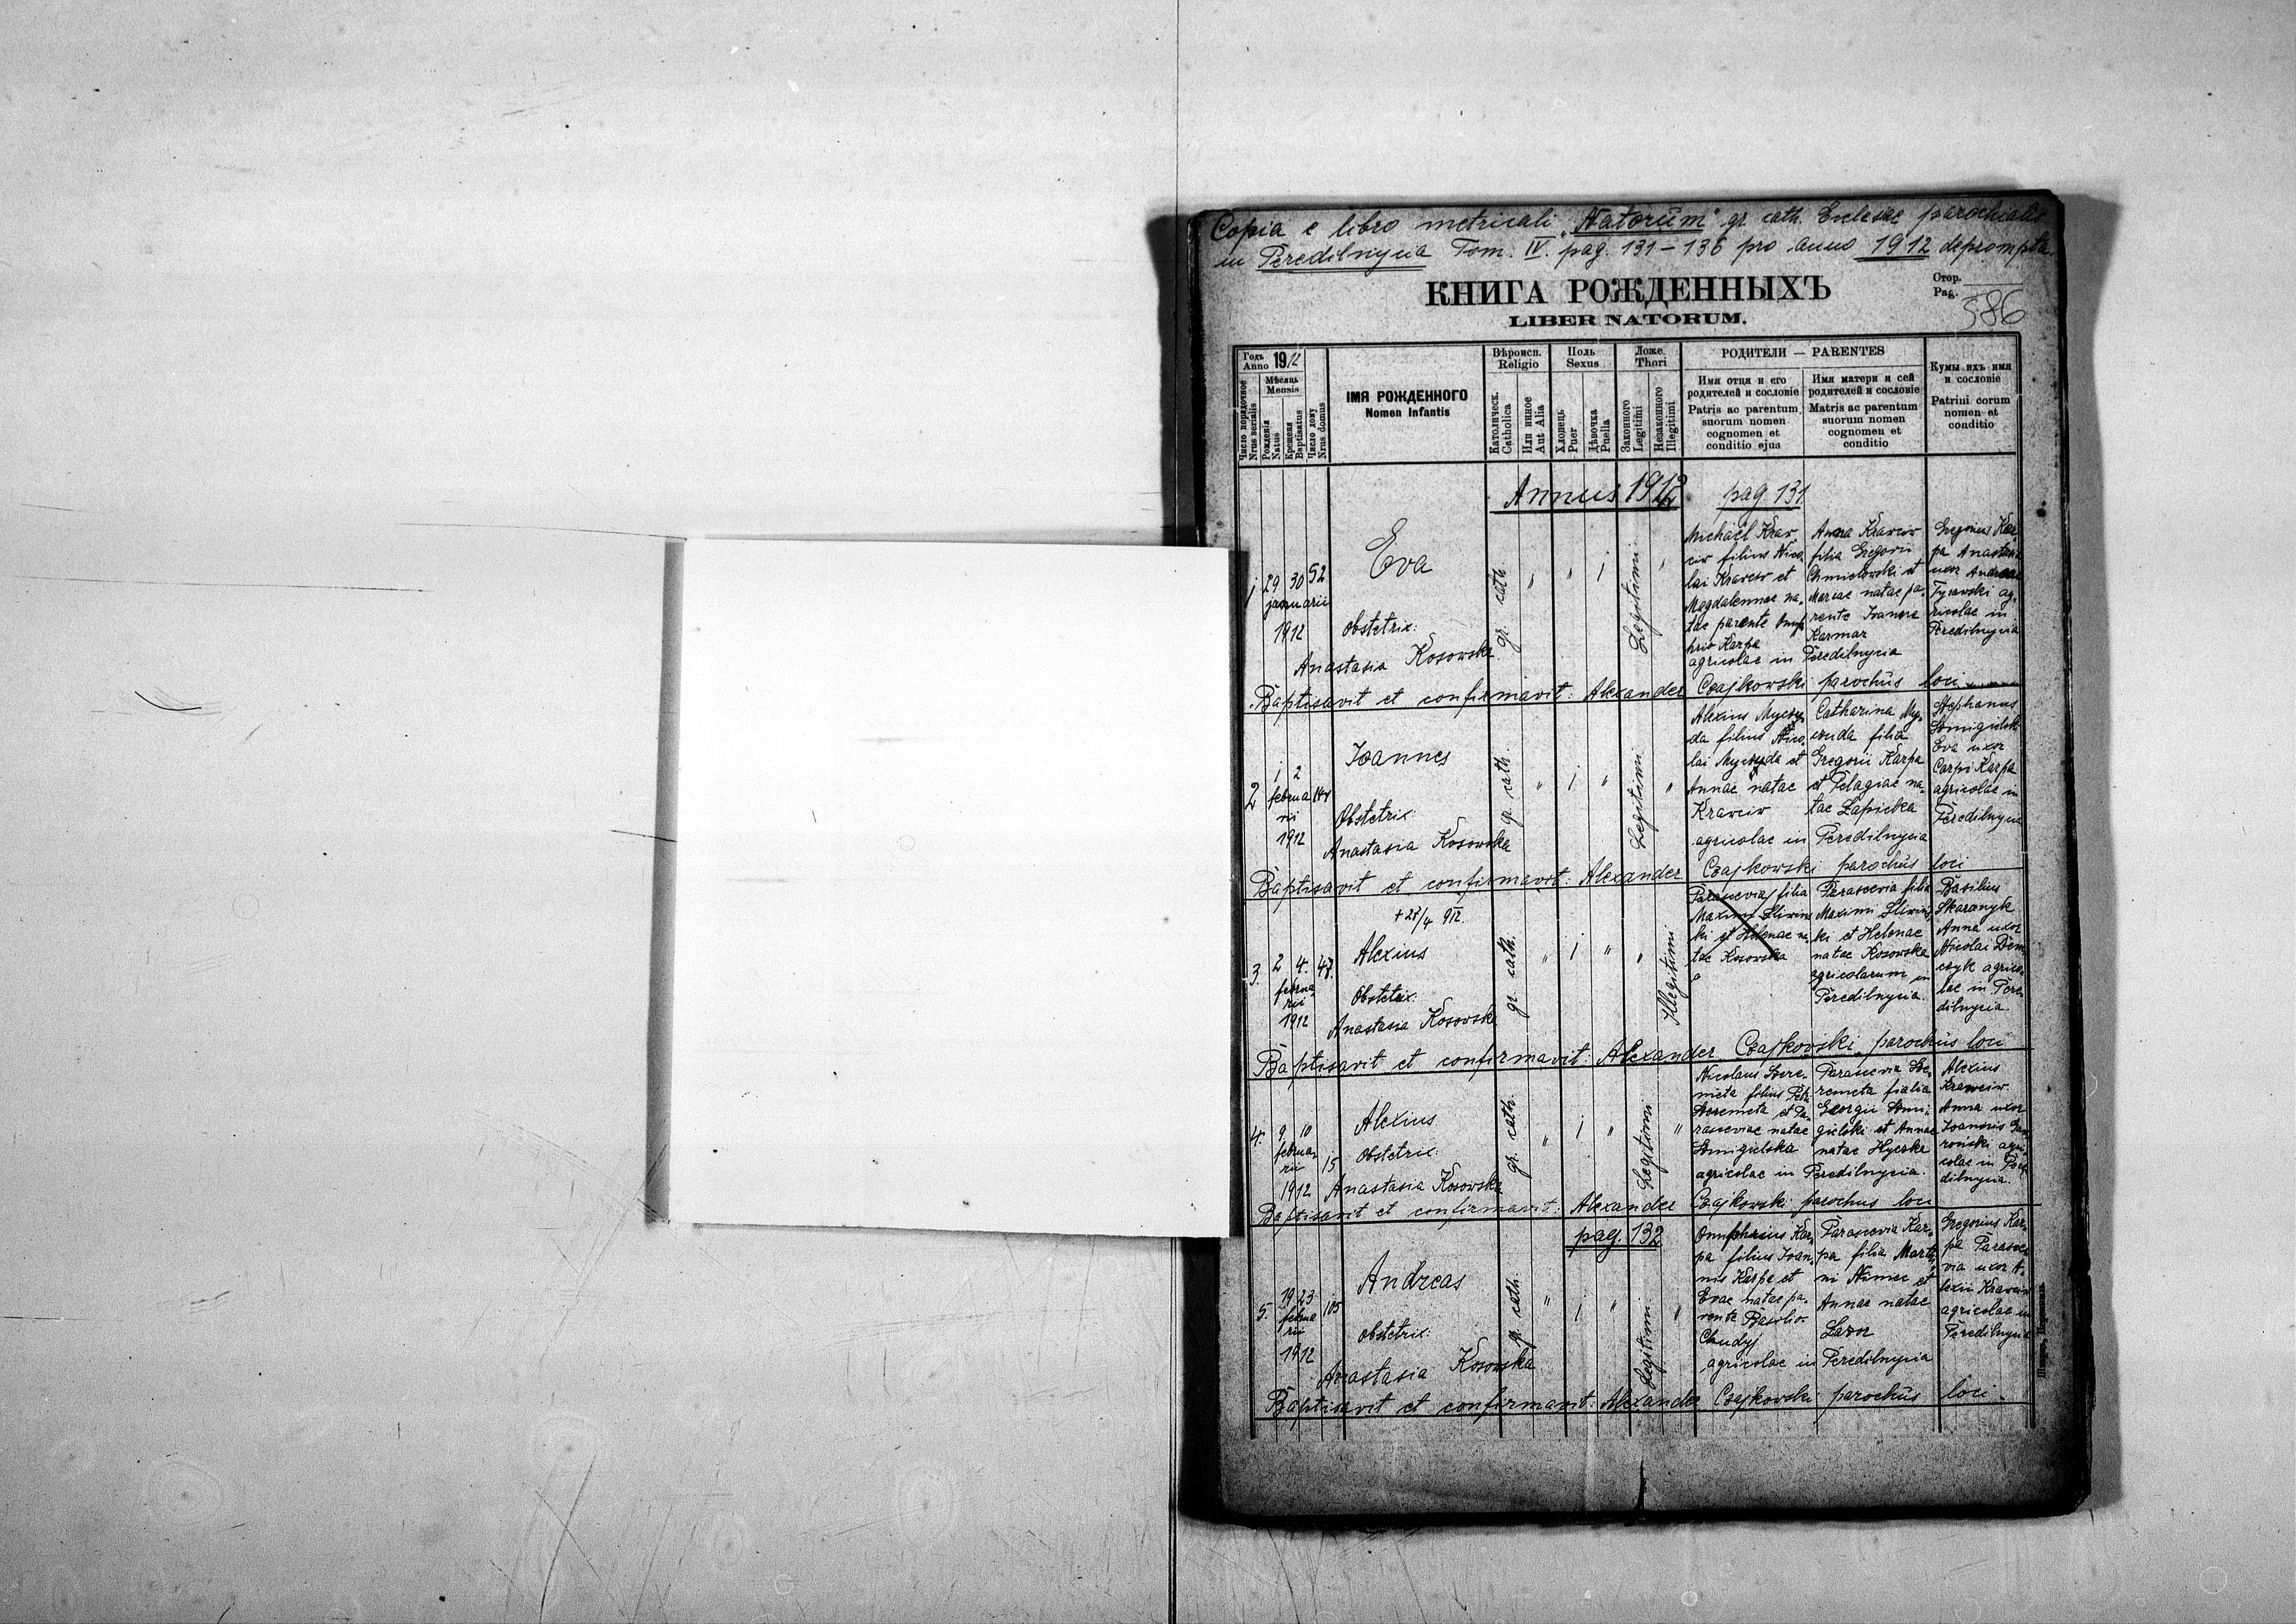 Copia e libro metricali "Natorum" gr. cath. Ecclesiae parochialis
in Peredilnycia Tom. IV. pag. 131-136 pro anno 1912 deprompta.
КНИГА РОЖДЕННЫХЪ
LIBER NATORUM.
Стор.
Pag.
586
Годъ
Anno 1912
Мѣсяць
Mensis
Число порядочное
Nrus serialis
Рожденія
Natus
Крещенія
Baptisatus
Число дому
Nrus domus
ІМЯ РОЖДЕННОГО
Nomen Infantis
Вѣроисп.
Religio
Католическ.
Catholica
Или инное
Aut Alia
Полъ
Sexus
Хлопець
Puer
Дѣвочка
Puella
Ложе
Thori
Законного
Legitimi
Незаконного
Illegitimi
РОДИТЕЛИ — PARENTES
Имя отця и его
родителей и сословіе
Patris ac parentum
suorum nomen
cognomen et
conditio ejus
Имя матери и сей
родителей и сословіе
Matris ac parentum
suorum nomen
cognomen et
conditio
Кумы ихъ имя
и сословіе
Patrini eorum
nomen et
conditio
Annus 1912 pag. 131
1
29 30 52
januarii
1912
Eva
Obstetrix:
Anastasia Kosowska
gr. cath.
" " 1
Legitimi
"
Michaël Kraw
ciw filius Nico
lai Krawciw et
Magdalennae na-
tae parente Onuf
rio Karpa
agricolae in Peredilnycia
Anna Krawciw
filia Gregorii
Chmielowski et
Mariae natae pa-
rente Ivanne
Karmar
Gregorius Kar
pa Anastasia
uxor Andreae
Tysowski ag-
ricolae in
Peredilnycia
Baptisavit et confirmavit: Alexander Czajkowski parochus loci
2
1 2
februa 144
rii
1912
Ioannes
Obstetrix:
Anastasia Kosowska
gr. cath.
" 1 "
Legitimi
"
Alexius
da filius Nico-
lai et
Annae natae
Krawciw
agricolae in Peredilnycia
Catharina My-
czuda filia
Gregorii Karpa
et Pelagiae na-
tae Lapicka
Stephanus
Smigielski
Eva uxor
Carpi Karpa
agricolae in
Peredilnycia
Baptisavit et confirmavit: Alexander Czajkowski parochus loci
+ 27/4 912.
3.
2 4. 47.
februa
rii
1912
Alexius
Obstetrix:
Anastasia Kosowska
gr. cath.
" 1 " "
Illegitimi
Parascevia filia
Maximi Sliwins
ki et Helenae na-
tae Kosowska
Parascevia filia
Maximi Sliwins
ki et Helenae
natae Kosowska
agricolarum in
Peredilnycia.
Basilius
Skaranyk
Anna uxor
Nicolai Dem
czyk agrico-
lae in Pere-
dilnycia.
Baptisavit et confirmavit: Alexander Czajkowski parochus loci
4.
9 10
februa-
rii 15
1912
Alexius
Obstetrix:
Anastasia Kosowska
gr. cath.
" 1 "
Legitimi
"
Nicolaus Szere-
meta filius Petri
Szeremeta et Pa-
rasceviae natae
Smigielska
agricolae in Peredilnycia.
Parascevia Sze-
remeta fialia
Georgii Smi-
gielski et Annae
natae Hyczka
Alexius
Krawciw.
Anna uxor
Ioannis
agri-
colae in Pere
dilnycia.
Baptisavit et confirmavit: Alexander Czajkowski parochus loci
pag. 132
5.
19 23
februa 105
rii
1912
Andreas
Obstetrix:
Anastasia Kosowska
gr. cath.
" 1 "
Legitimi
"
Onuphrius Kar-
pa filius Ioan-
nis Karpa et
Evae natae pa-
rente Basilio
Chudyj
agricolae in Peredilnycia
Parascevia Kar-
pa filia Marti-
ni Nimec et
Annae natae
Lazor
Gregorius Kar-
pa Parasce-
via uxor A-
lexii Krawciw
agricolae in
Peredilnycia
Baptisavit et confirmavit: Alexander Czajkowski parochus loci